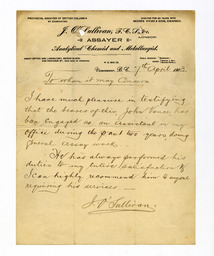 J. O'Sullivan, F.C.S.
ASSAYER
Analytical Chemist and Metallurgist.
Vancouver, B.C. 7th April
To whom it may Concern
I have much pleasure in testifying
that the bearer of this, John
has been engaged as an assistant in my
office during the past two years doing
general assay work.
He has always performed his
duties to my entire satisfaction &
I can highly recommend him to anyone
requiring his services —
J O'Sullivan